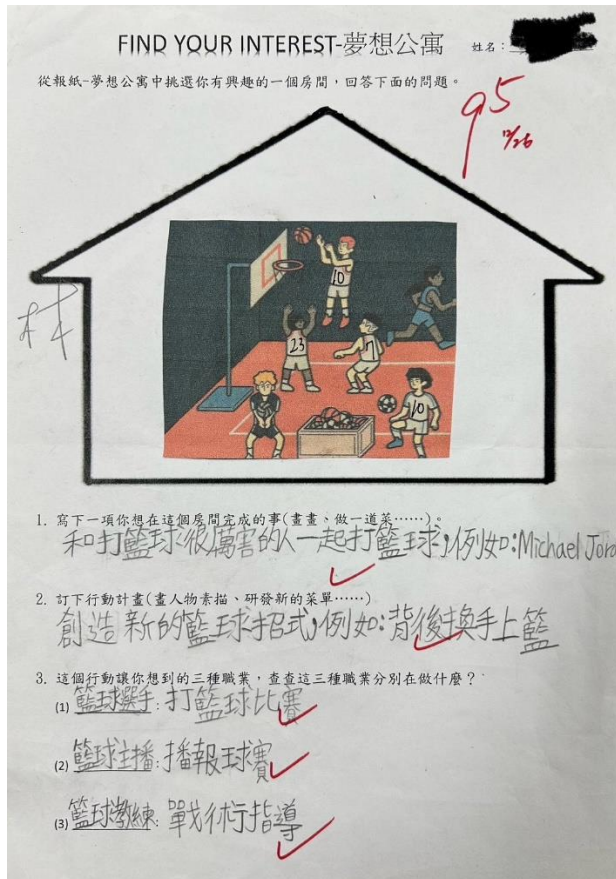 FIND YOUR INTEREST-夢想公寓 姓名：
從報紙-夢想公寓中挑選你有興趣的一個房間，回答下面的問題。
95
12/26
10
23
7
10
1. 寫下一項你想在這個房間完成的事(畫畫、做一道菜……)。
和打籃球很厲害的人一起打籃球，例如：Michael Jord
2. 訂下行動計畫(畫人物素描、研發新的菜單……)
創造新的籃球招式，例如：背後換手上籃
3. 這個行動讓你想到的三種職業，查查這三種職業分別在做什麼？
(1) 籃球選手：打籃球比賽
(2) 籃球主播：播報球賽
(3) 籃球教練：戰術指導